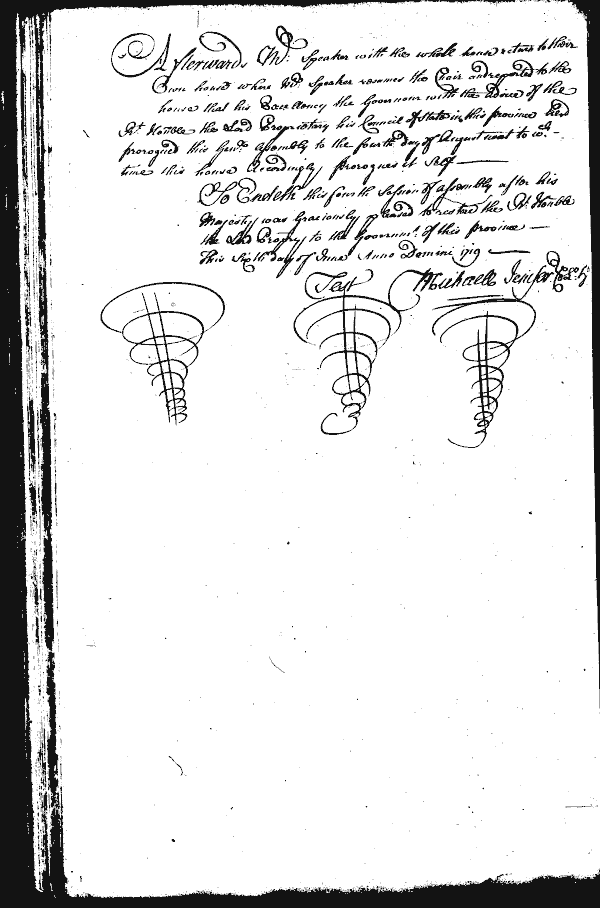 Afterwards Mr. Speaker with the whole house return to their
Own house where Mr. Speaker resumes the Chair and reported to the
house that his Excellency the Governour with the advice of the
Rt. Honble the Lord Proprietary his Council of State in this province had
prorogued this Genll. Assembly to the fourth day of August next to wch.
time this house Accordingly prorogues it Self
So Endeth this fourth Session of assembly after his
Majesty was Graciously pleased to restore the Rt. Honble
the Lord Propry to the Governmt. of this province
This Sixth day of June Anno Domini 1719
Test Michaell Jenifer